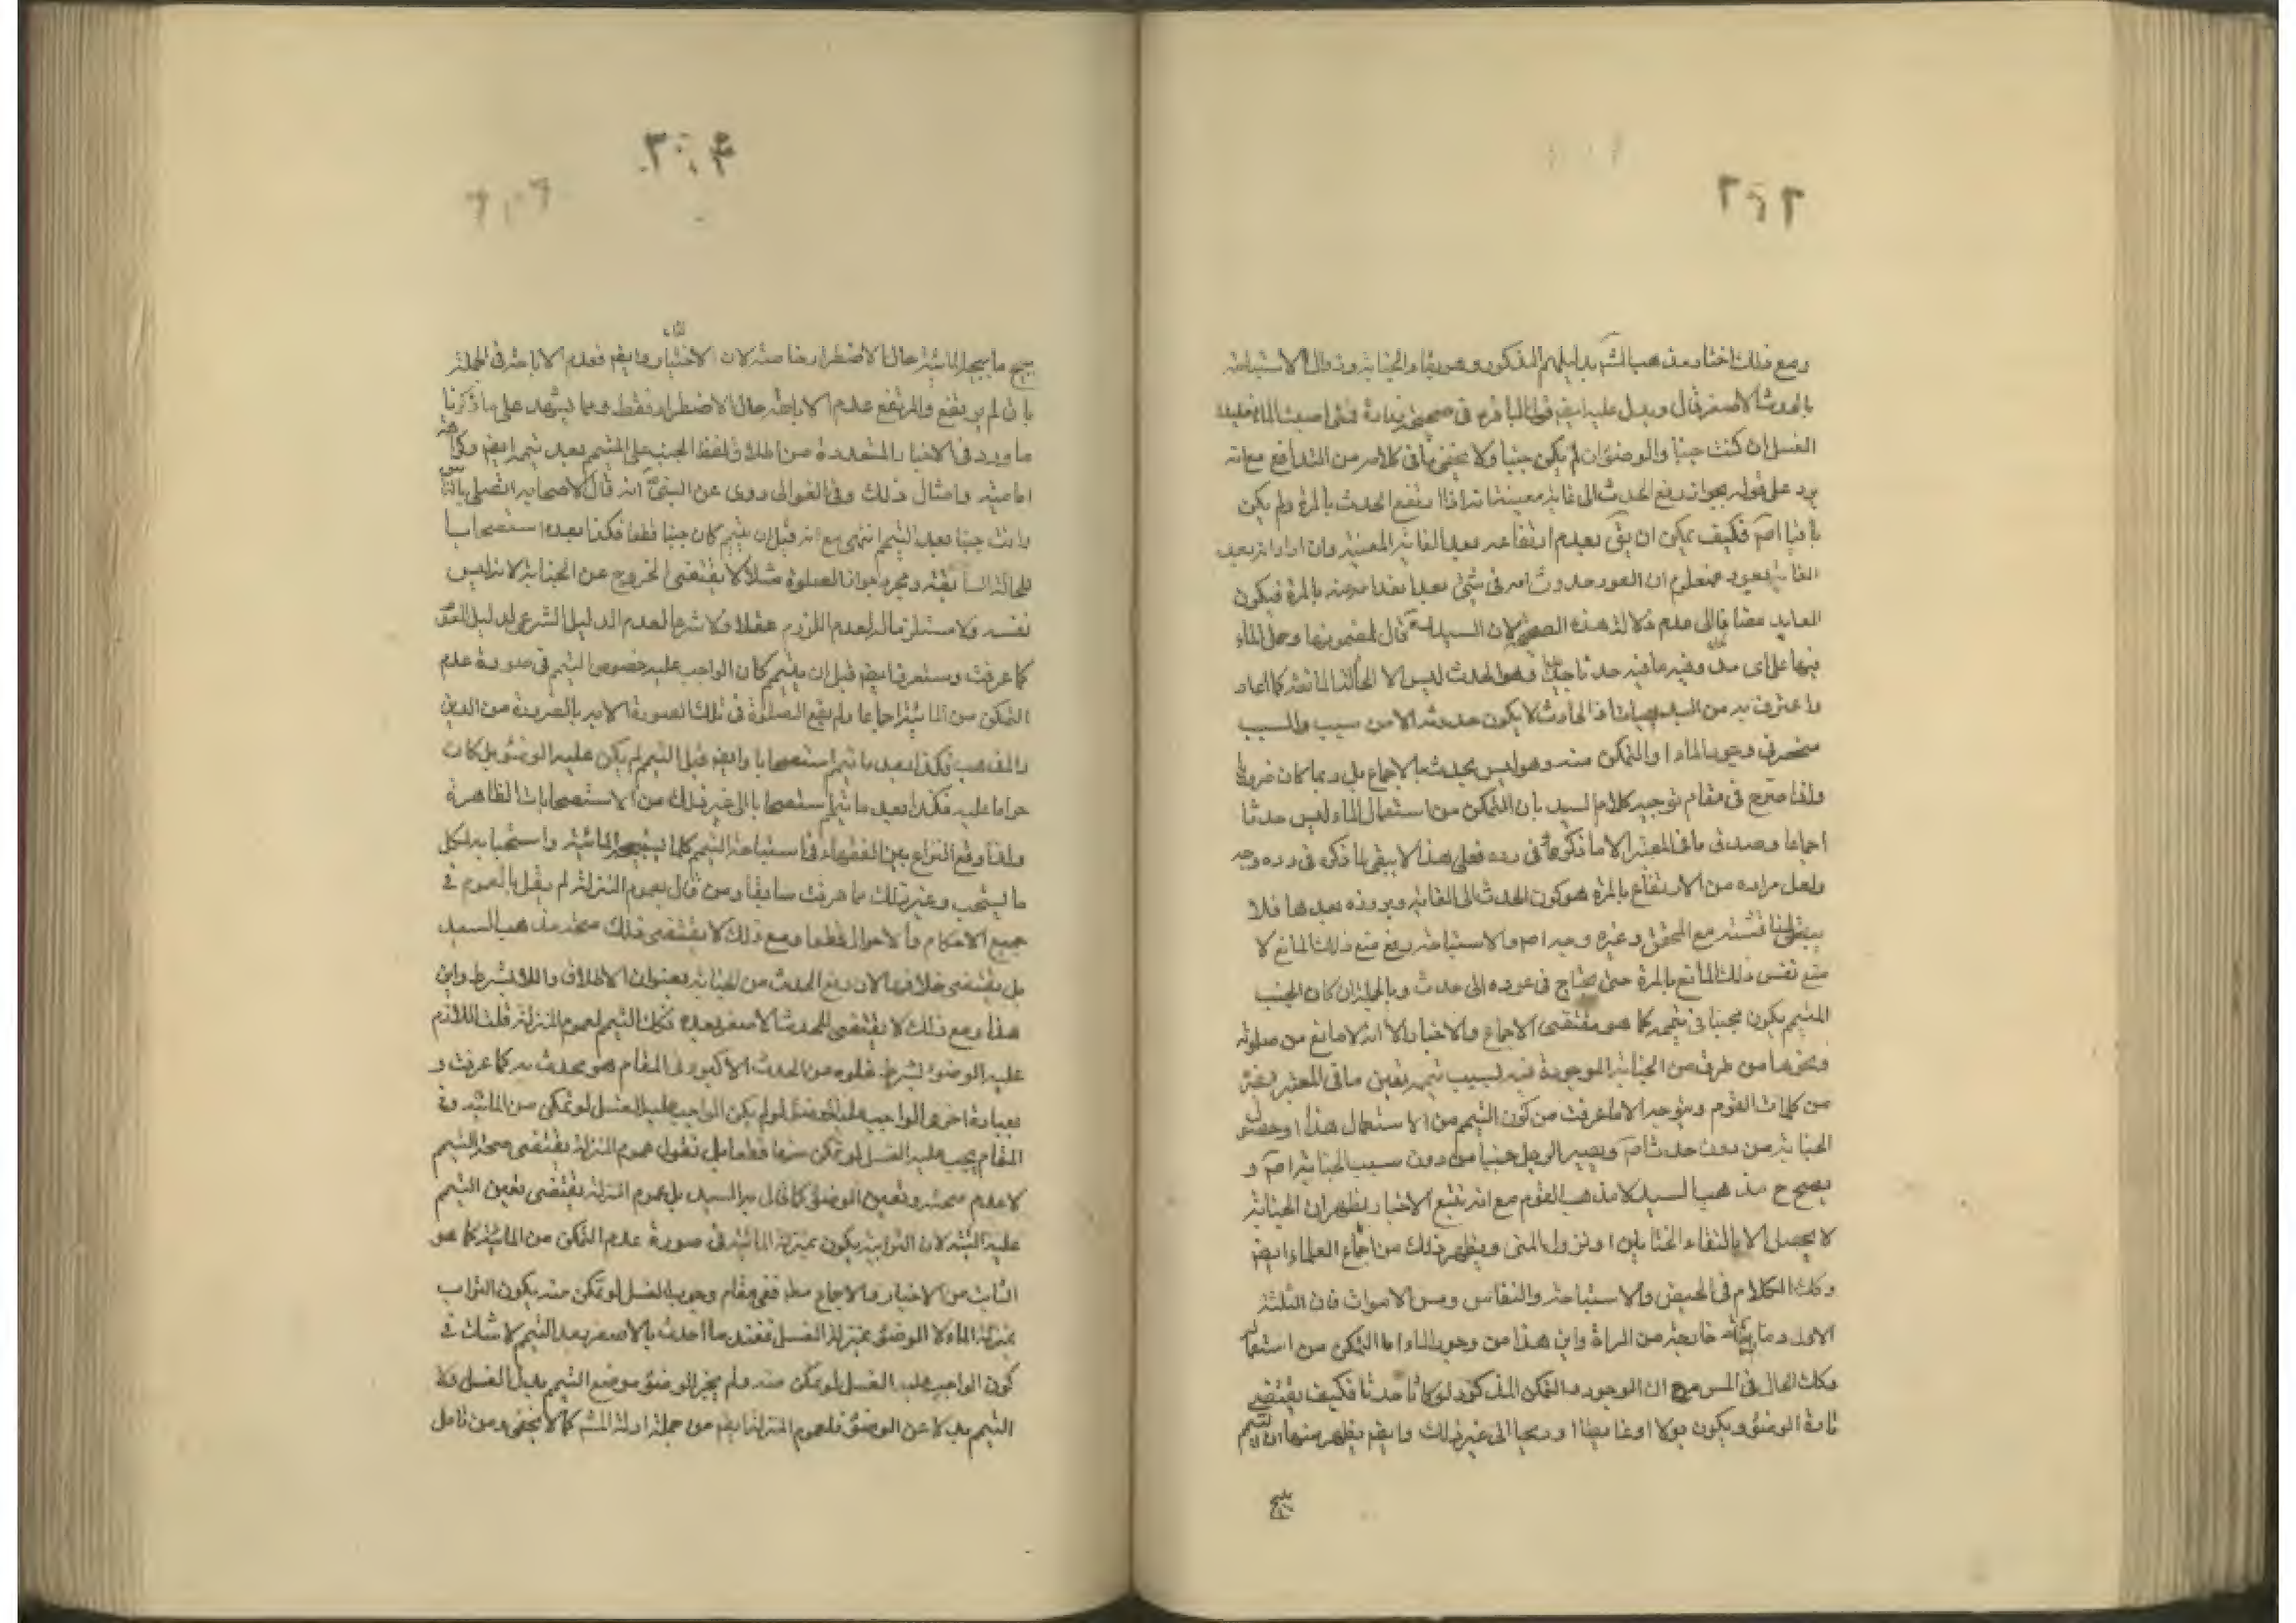 ٣٠٣
ومع ذلك اختار مذهب المشهـ بدليلهم المذكور وهو بقاء الجنابة وزوال الاستباحة
بالحدث الاصغر قال ويدل عليه ايضـ قول الباقر ع في صحيحة زرارة فمتى اصبت الماء فعليك
الغسل ان كنت جنبا والوضوء ان لم تكن جنبا ولا يخفى ما في كلامه من التدافع مع انه
يرد على قوله بجواز رفع الحدث الى غاية معينة انه اذا ارتفع الحدث بالمرة ولم يكن
باقيا اصـ فكيف يمكن ان يقـ بعدم ارتفاعه بعد الغاية المعينة وان اراد انه بعد
الغاية يعود فمعلوم ان العود حدوث امر في شيء بعد انعدامه منه بالمرة فيكون
العايد مضافا الى عدم دلالة هذه الصحيحة لان السيد قال بمضمونها وحمل الماء
فيها على اى وفيه ما فيه حدثا جديدا وهو الحدث ليس الا الحالة المانعة كما افاد
واعترف به من السيد الحادث لا يكون حدوثه الا من سبب والسبب
منحصر في وجود الماء والتمكن منه وهو ليس بحدث بالاجماع بل ربما كان ضروريا
ولذا صرح في مقام توجيه كلام السيد بان التمكن من استعمال الماء ليس حدثا
اجماعا وصدق ما في المعتبر الا ما ذكره في رده فعلى هذا لا يبقى لما ذكره في رده وجه
ولعل مراده من الارتفاع بالمرة هو كون الحدث الى الغاية وبروزه بعدها فلا
مع المحقق وغيره وجه اصـ والاستباحة رفع منع ذلك المانع لا
منع نفس ذلك المانع بالمرة حتى يحتاج في عوده الى حدث وبالجملة ان كان الجنب
المتيمم يكون مجنبا في تيممه كما هو مقتضى الاجماع والاخبار الا انه لا مانع من صلوته
ونحوها من طرف من الجنابة الموجودة فيه لسبب تيممه تعين ما في المعتبر وغيره
من كلمات القوم وتوجه الا ما عرفت من كون التيمم من الاستعمال هذا او حصول
الجنابة من دون حدث اصـ ويصير الرجل جنبا من دون سبب الجنابة اصـ و
يصح ح مذهب السيد لا مذهب القوم مع انه تتبع الاخبار يظهر ان الجنابة
لا يحصل الا بالتقاء الختانين او نزول المنى ويظهر ذلك من اجماع العلماء ايضـ
وكك الكلام في الحيض والاستحاضة والنفاس ومس الاموات فان الثلثة
الاول دماء خارجة من المراة واين هذا من وجود الماء او التمكن من استعماله
وكك الحال في المس مع ان الوجود والتمكن المذكور لو كانا حدثا فكيف يقتضى
تارة الوضوء ويكون بولا او غايطا او ريحا الى غير ذلك وايضـ يظهر منها ان التيمم
يبيح
٣٠٤
يبيح ما يبيح المائية حال الاضطرار خاصة لان الاختيار ايضـ فعدم الاباحة في الجملة
باق لم يرتفع والمرتفع عدم الاباحة حال الاضطرار فقط ومما يشهد على ما ذكرنا
ما ورد في الاخبار المتعددة من اطلاق لفظ الجنب على المتيمم بعد تيممه ايضـ
امامته وامثال ذلك وفي الغوالى روى عن النبي ص انه قال لاصحابه اتصلى بالناس
وانت جنب بعد التيمم انتهى مع انه قبل ان يتيمم كان جنبا قطعا فكذا بعده استصحابا
للحالة السابقة ومجرد جواز الصلوة مثلا لا يقتضى الخروج عن الجنابة لانه ليس
نفسه ولا مستلزما له لعدم اللزوم عقلا ولا شرعا لعدم الدليل الشرعى
كما عرفت وستعرف ايضـ قبل ان يتيمم كان الواجب عليه خصوص التيمم في صورة عدم
التمكن من المائية اجماعا ولم يقع الصلوة في تلك الصورة الا به بالضرورة من الدين
والمذهب فكذا بعد ما تيمم استصحابا وايضـ قبل التيمم لم يكن عليه الوضوء بل كان
حراما عليه فكذا بعد ما تيمم استصحابا الى غير ذلك من الاستصحابات الظاهرة
ولذا وقع النزاع بين الفقهاء في استباحة التيمم كلما يبيحه المائية واستحبابه لكل
ما يستحب وغير ذلك مما عرفت سابقا ومن قال بعموم المنزلة لم يقل بالعموم في
جميع الاحكام والاحوال قطعا ومع ذلك لا يقتضى ذلك صحة مذهب السيد
بل يقتضى خلافها لان رفع الحدث من الجنابة بعنوان الاطلاق واللا بشرط واين
هذا ومع ذلك لا يقتضى للحدث الاصغر بعده فكك التيمم لعموم المنزلة قلت اللازم
عليه الوضوء بشرط خلوه من الحدث الاكبر وفي المقام هو محدث به كما عرفت و
بعبارة اخرى الواجب عليه الوضوء لو لم يكن الواجب عليه الغسل لو تمكن من المائية وفي
المقام يجب عليه الغسل لو تمكن منها قطعا بل نقول عموم المنزلة يقتضى صحة التيمم
لا عدم صحته وتعين الوضوء كما قال به السيد بل عموم المنزلة يقتضى تعين التيمم
عليه البتة لان الترابية يكون بمنزلة المائية في صورة عدم التمكن من المائية كما هو
الثابت من الاخبار والاجماع مطـ ففي مقام وجوب الغسل لو تمكن منه يكون التراب
بمنزلة الماء لا الوضوء بمنزلة الغسل فعند ما احدث بالاصغر بعد التيمم لا شك في
كون الواجب عليه الغسل لو تمكن منه ولم يجز الوضوء موضع التيمم بدل الغسل ولا
التيمم بدلا عن الوضوء فلعموم المنزلة ايضـ من جملة ادلة المشهـ كما لا يخفى ومن تامل